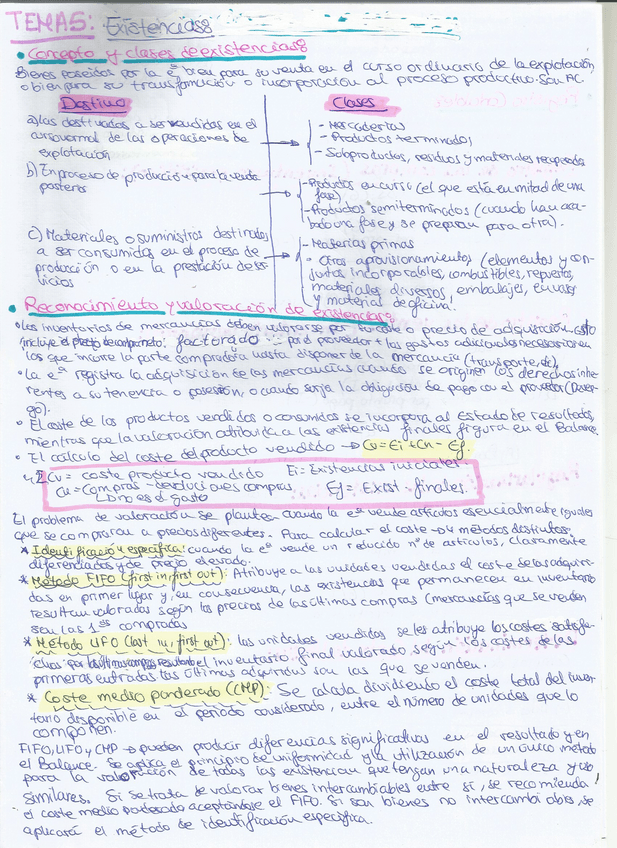 TEMA 5: Existencias
• Concepto y clases de existencias
Bienes poseídos por la eª bien para su venta en el curso ordinario de la explotación,
o bien para su transformación o incorporación al proceso productivo. Son AC.
Destino
Clases
a) Las destinadas a ser vendidas en el
curso normal de las operaciones de
explotación
- Mercaderías
- Productos terminados
- Subproductos, residuos y materiales recuperados
b) En proceso de producción para la venta
posterior
- Productos en curso (el que está en mitad de una
fase)
- Productos semiterminados (cuando han aca-
bado una fase y se preparan para otra).
c) Materiales o suministros destinados
a ser consumidos en el proceso de
producción o en la prestación de ser-
vicios
- Materias primas
• Otros aprovisionamientos (elementos y con-
juntos incorporables, combustibles, repuestos,
materiales diversos, embalajes, envases
y material de oficina.
• Reconocimiento y valoración de existencias
• Los inventarios de mercancías deben valorarse por su coste o precio de adquisición.
factorado por el proveedor + los gastos adicionales necesarios en
los que incurre la parte compradora hasta disponer de la mercancía (transporte, etc).
• La eª registra la adquisición de las mercancías cuando se originen los derechos inhe-
rentes a su tenencia o posesión, o cuando surja la obligación de pago con el proveedor
• El coste de los productos vendidos o consumidos se incorpora al Estado de resultados,
mientras que la valoración atribuida a las existencias finales figura en el Balance.
• El cálculo del coste del producto vendido → Cv = Ei + Cn - Ef.
Cv = coste producto vendido Ei = Existencias iniciales
Cn = Compras - devoluciones compras Ef = Exist. finales
El problema de valoración se plantea cuando la eª vende artículos esencialmente iguales
que se compraron a precios diferentes. Para calcular el coste → 4 métodos distintos:
* Identificación específica: cuando la eª vende un reducido nº de artículos, claramente
diferenciados y de precio elevado.
* Método FIFO (first in, first out): Atribuye a las unidades vendidas el coste de las adquiri-
das en primer lugar y, en consecuencia, las existencias que permanecen en inventario
resultan valoradas según los precios de las últimas compras (mercancías que se venden
son las 1ªs compradas
* Método LIFO (last in, first out): las unidades vendidas se les atribuye los costes satisfe-
chos por las últimas compras el inventario final valorado, según los costes de las
primeras entradas las últimas adquiridas son las que se venden.
* Coste medio ponderado (CMP): Se calcula dividiendo el coste total del inven-
tario disponible en el periodo considerado, entre el número de unidades que lo
componen.
FIFO, LIFO y CMP → pueden producir diferencias significativas en el resultado y en
el Balance. Se aplica el principio de uniformidad y la utilización de un único método
para la valoración de todas las existencias que tengan una naturaleza y uso
similares. Si se trata de valorar bienes intercambiables entre sí, se recomienda
el coste medio ponderado aceptándose el FIFO. Si son bienes no intercambiables, se
aplicará el método de identificación específica.